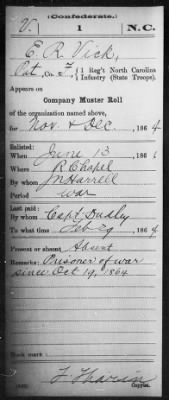 (Confederate.)
V. 1 N.C.
E R Vick,
Pvt, Co. F, 1 Reg't North Carolina
Infantry (State Troops).
Appears on
Company Muster Roll
of the organization named above,
for Nov & Dec, 1864
Enlisted:
When June 13, 1861
Where R. Chapel
By whom J N Harrell
Period war
Last paid:
By whom Capt Dudley
To what time Feb 29, 1864
Present or absent Absent
Remarks: Prisoner of war
since Oct 19, 1864
Book mark:
Copyist.